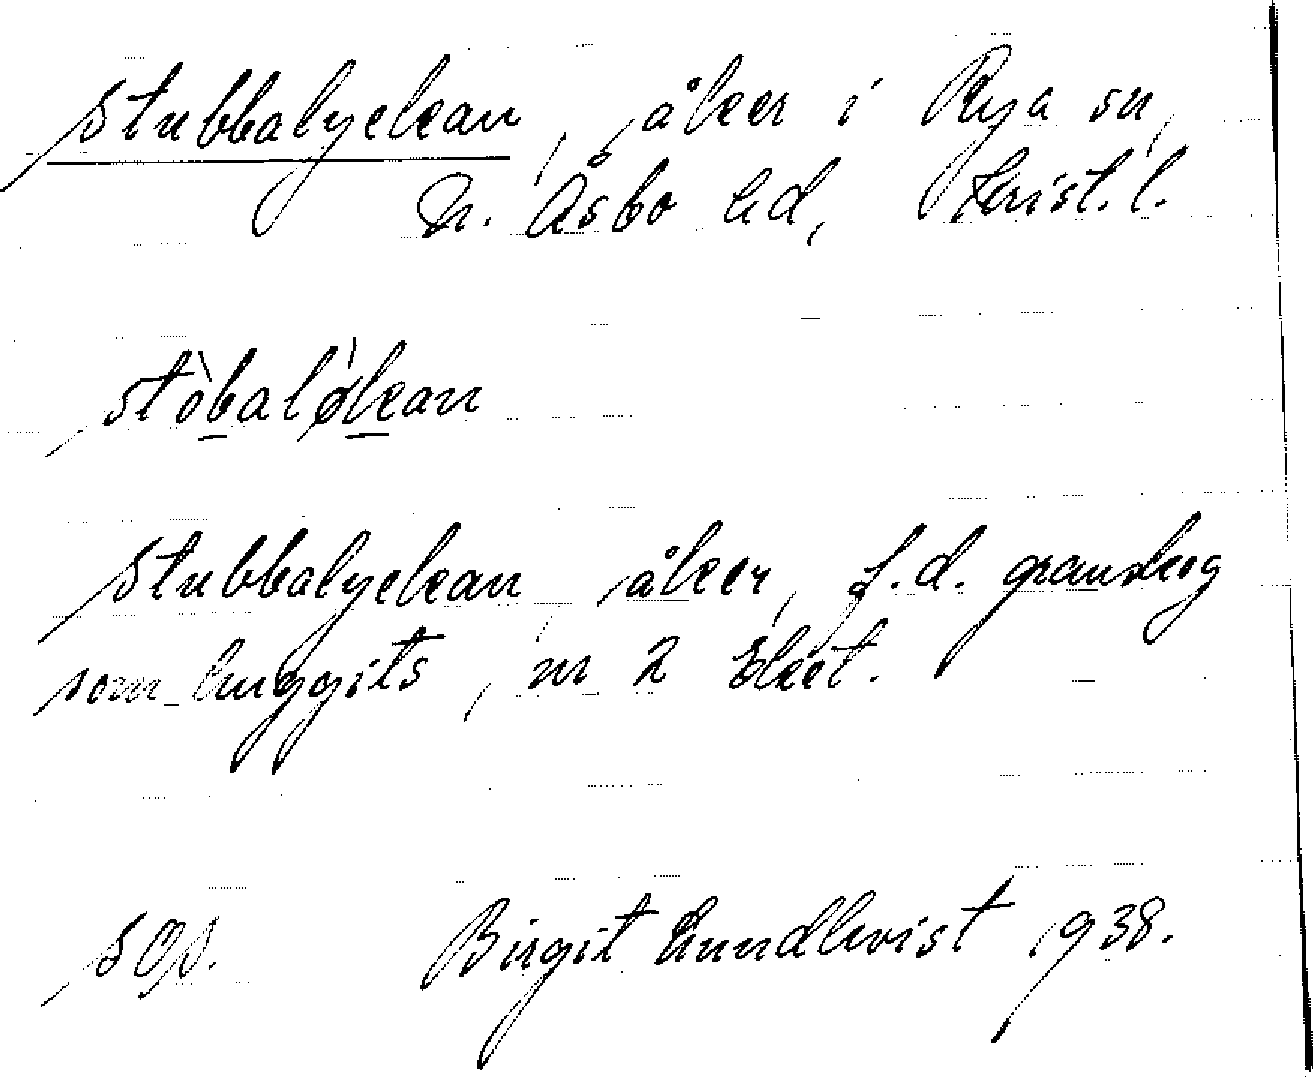 Stubbalyckan, åker i Rya sn,
N. Åsbo hd, Krist. l.
stòbaløkan
Stubbalyckan, åker, f.d. granskog
som huggits, nr 2 Eket.
Birgit Lundkvist 1938.